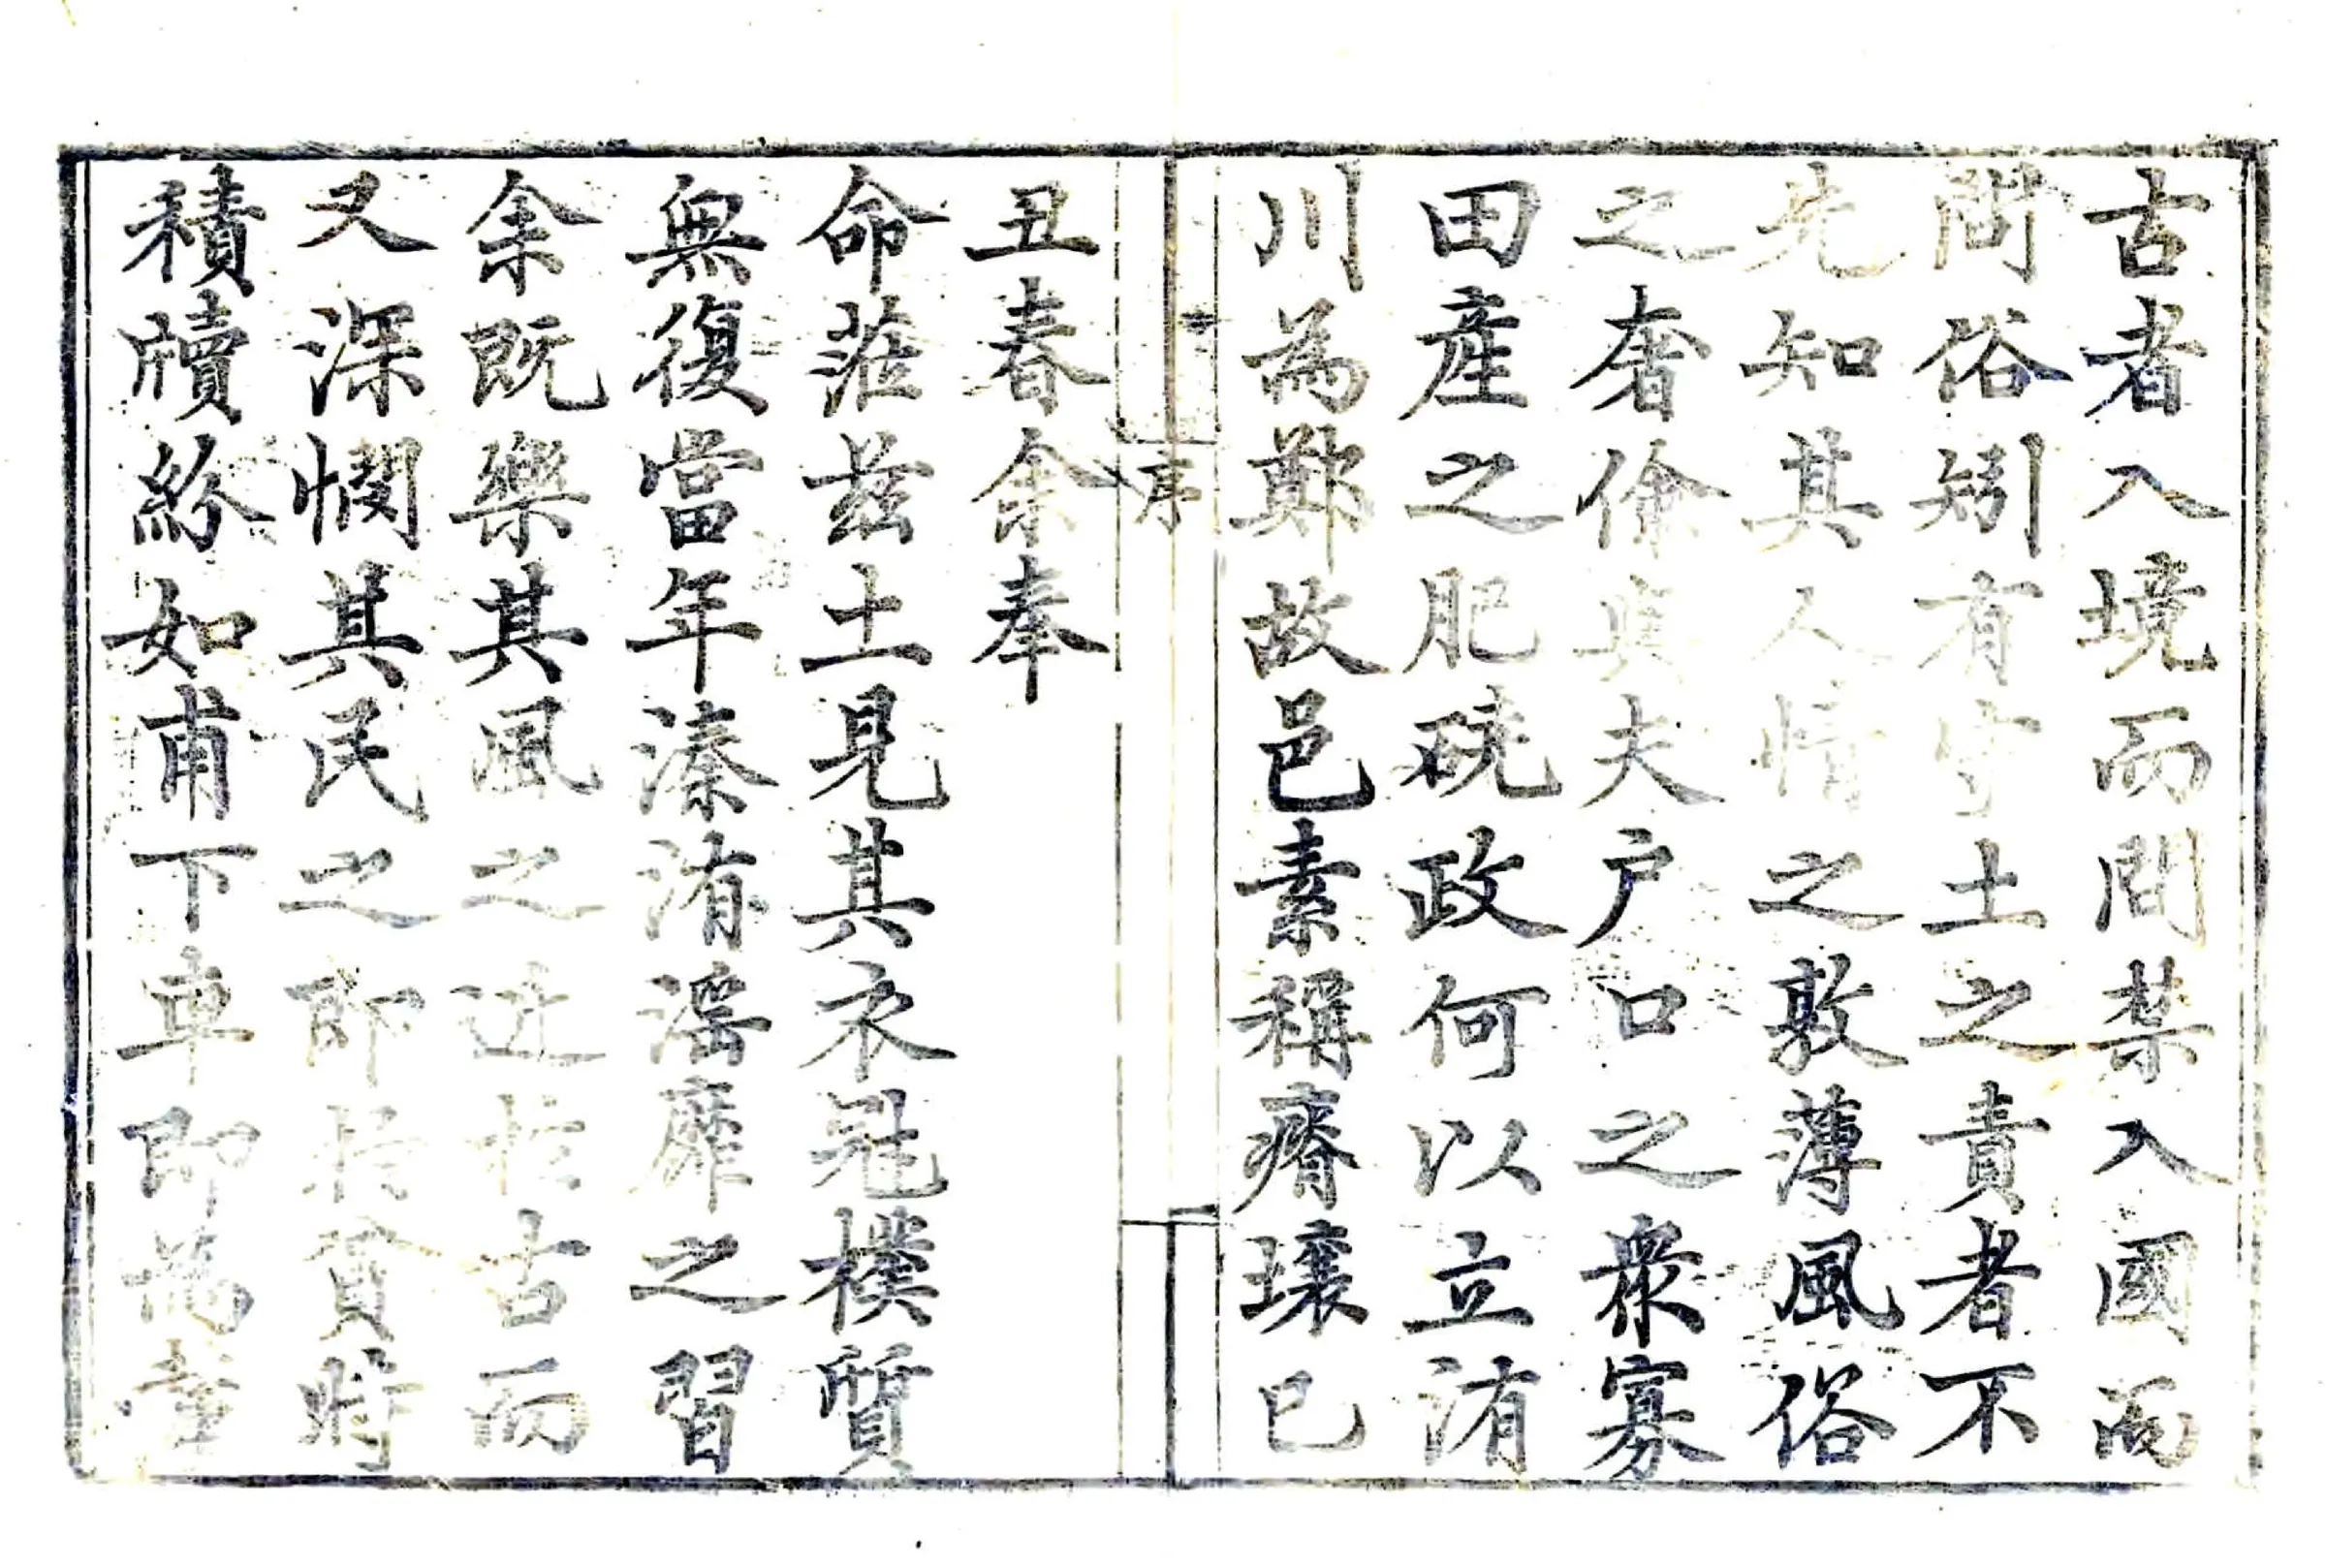 古者入境而問禁入國而
問俗矧有守土之責者不
先知其人情之敦薄風俗
之奢儉與夫户口之衆寡
田產之肥磽政何以立洧
川為鄭故邑素稱瘠壤已
序
丑春余奉
命蒞茲土見其衣冠樸質
無復當年溱洧滛靡之習
余既樂其風之近於古而
又深憫其民之即於貧時
積牘紛如甫下車即為